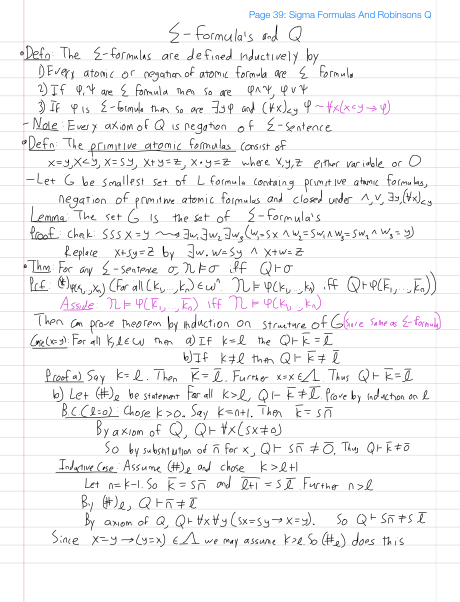 Page 39: Sigma Formulas And Robinsons Q
Σ-formula's and Q
• Defn: The Σ-formulas are defined inductively by
1) Every atomic or negation of atomic formula are Σ formula
2) If φ, ψ are Σ formula then so are φ∧ψ, φ∨ψ
3) If φ is Σ-formula then so are ∃yφ and (∀x)<y φ ~ ∀x(x<y → φ)
- Note: Every axiom of Q is negation of Σ-sentence
• Defn: The primitive atomic formulas consist of
x=y, x<y, x=Sy, x+y=z, x·y=z where x,y,z either variable or 0
- Let G be smallest set of L formula containg primitive atomic formulas,
negation of primitive atomic formulas and closed under ∧, ∨, ∃y, (∀x)<y
Lemma: The set G is the set of Σ-formula's
Proof: Check: SSSx=y ⇝ ∃w₁∃w₂∃w₃(w₁=Sx ∧ w₂=Sw₁ ∧ w₃=Sw₂ ∧ w₃=y)
Replace x+Sy=z by ∃w. w=Sy ∧ x+w=z
• Thm: For any Σ-sentence σ, N⊨σ iff Q⊢σ
Prf: (#)φ(x₁,..,xₙ) (For all (k₁,..,kₙ)∈ωⁿ N⊨φ(k₁,..,kₙ) iff Q⊢φ(k̄₁,..,k̄ₙ))
Aside N⊨φ(k̄₁,..,k̄ₙ) iff N⊨φ(k₁,..,kₙ)
Then can prove theorem by induction on structure of G (since same as Σ-formula)
Case(x=y): For all k,l∈ω then a) If k=l then Q⊢k̄=l̄
b) If k≠l then Q⊢k̄≠l̄
Proof a) Say k=l. Then k̄=l̄. Further x=x∈Λ. Thus Q⊢k̄=l̄
b) Let (#)ₗ be statement For all k>l, Q⊢k̄≠l̄. Prove by induction on l
B.C.(l=0): Chose k>0. Say k=n+1. Then k̄=Sn̄
By axiom of Q, Q⊢∀x(Sx≠0)
So by substitution of n̄ for x, Q⊢Sn̄≠0̄. Thus Q⊢k̄≠0̄
Inductive Case: Assume (#)ₗ and chose k>l+1
Let n=k-1. So k̄=Sn̄ and l+1=Sl̄. Further n>l
By (#)ₗ, Q⊢n̄≠l̄
By axiom of Q, Q⊢∀x∀y(Sx=Sy→x=y). So Q⊢Sn̄≠Sl̄
Since x=y→(y=x)∈Λ we may assume k>l. So (#ₗ) does this